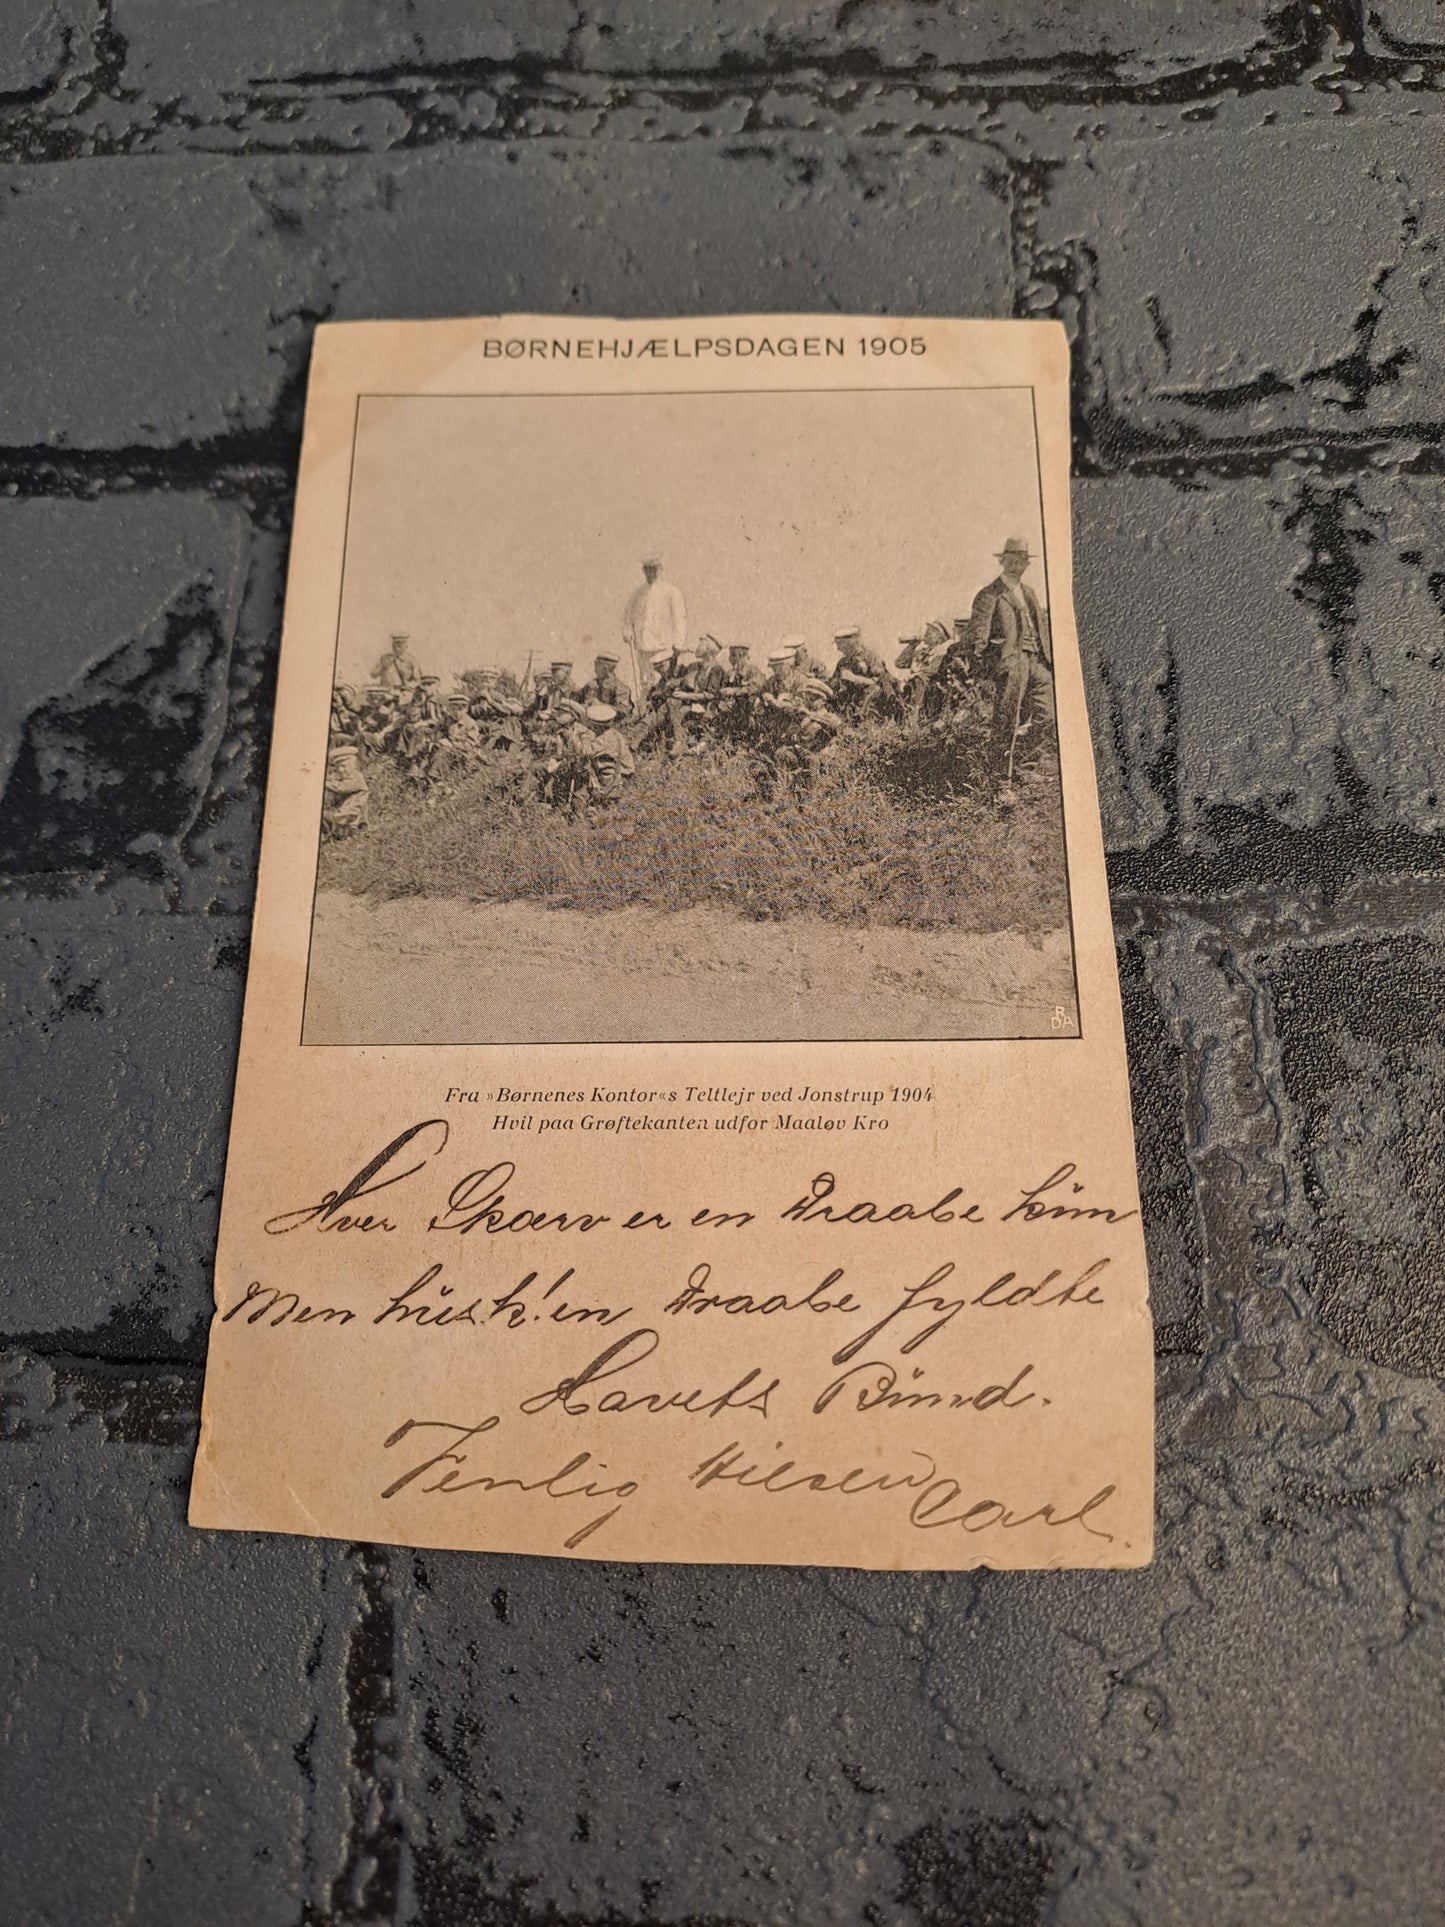 BØRNEHJÆLPSDAGEN 1905
R
DA
Fra »Børnenes Kontor«s Teltlejr ved Jonstrup 1904
Hvil paa Grøftekanten udfor Maaløv Kro
Hver Skærv er en Draabe kun
Men husk! en Draabe fyldte
Havets Bund.
Venlig Hilsen Carl.